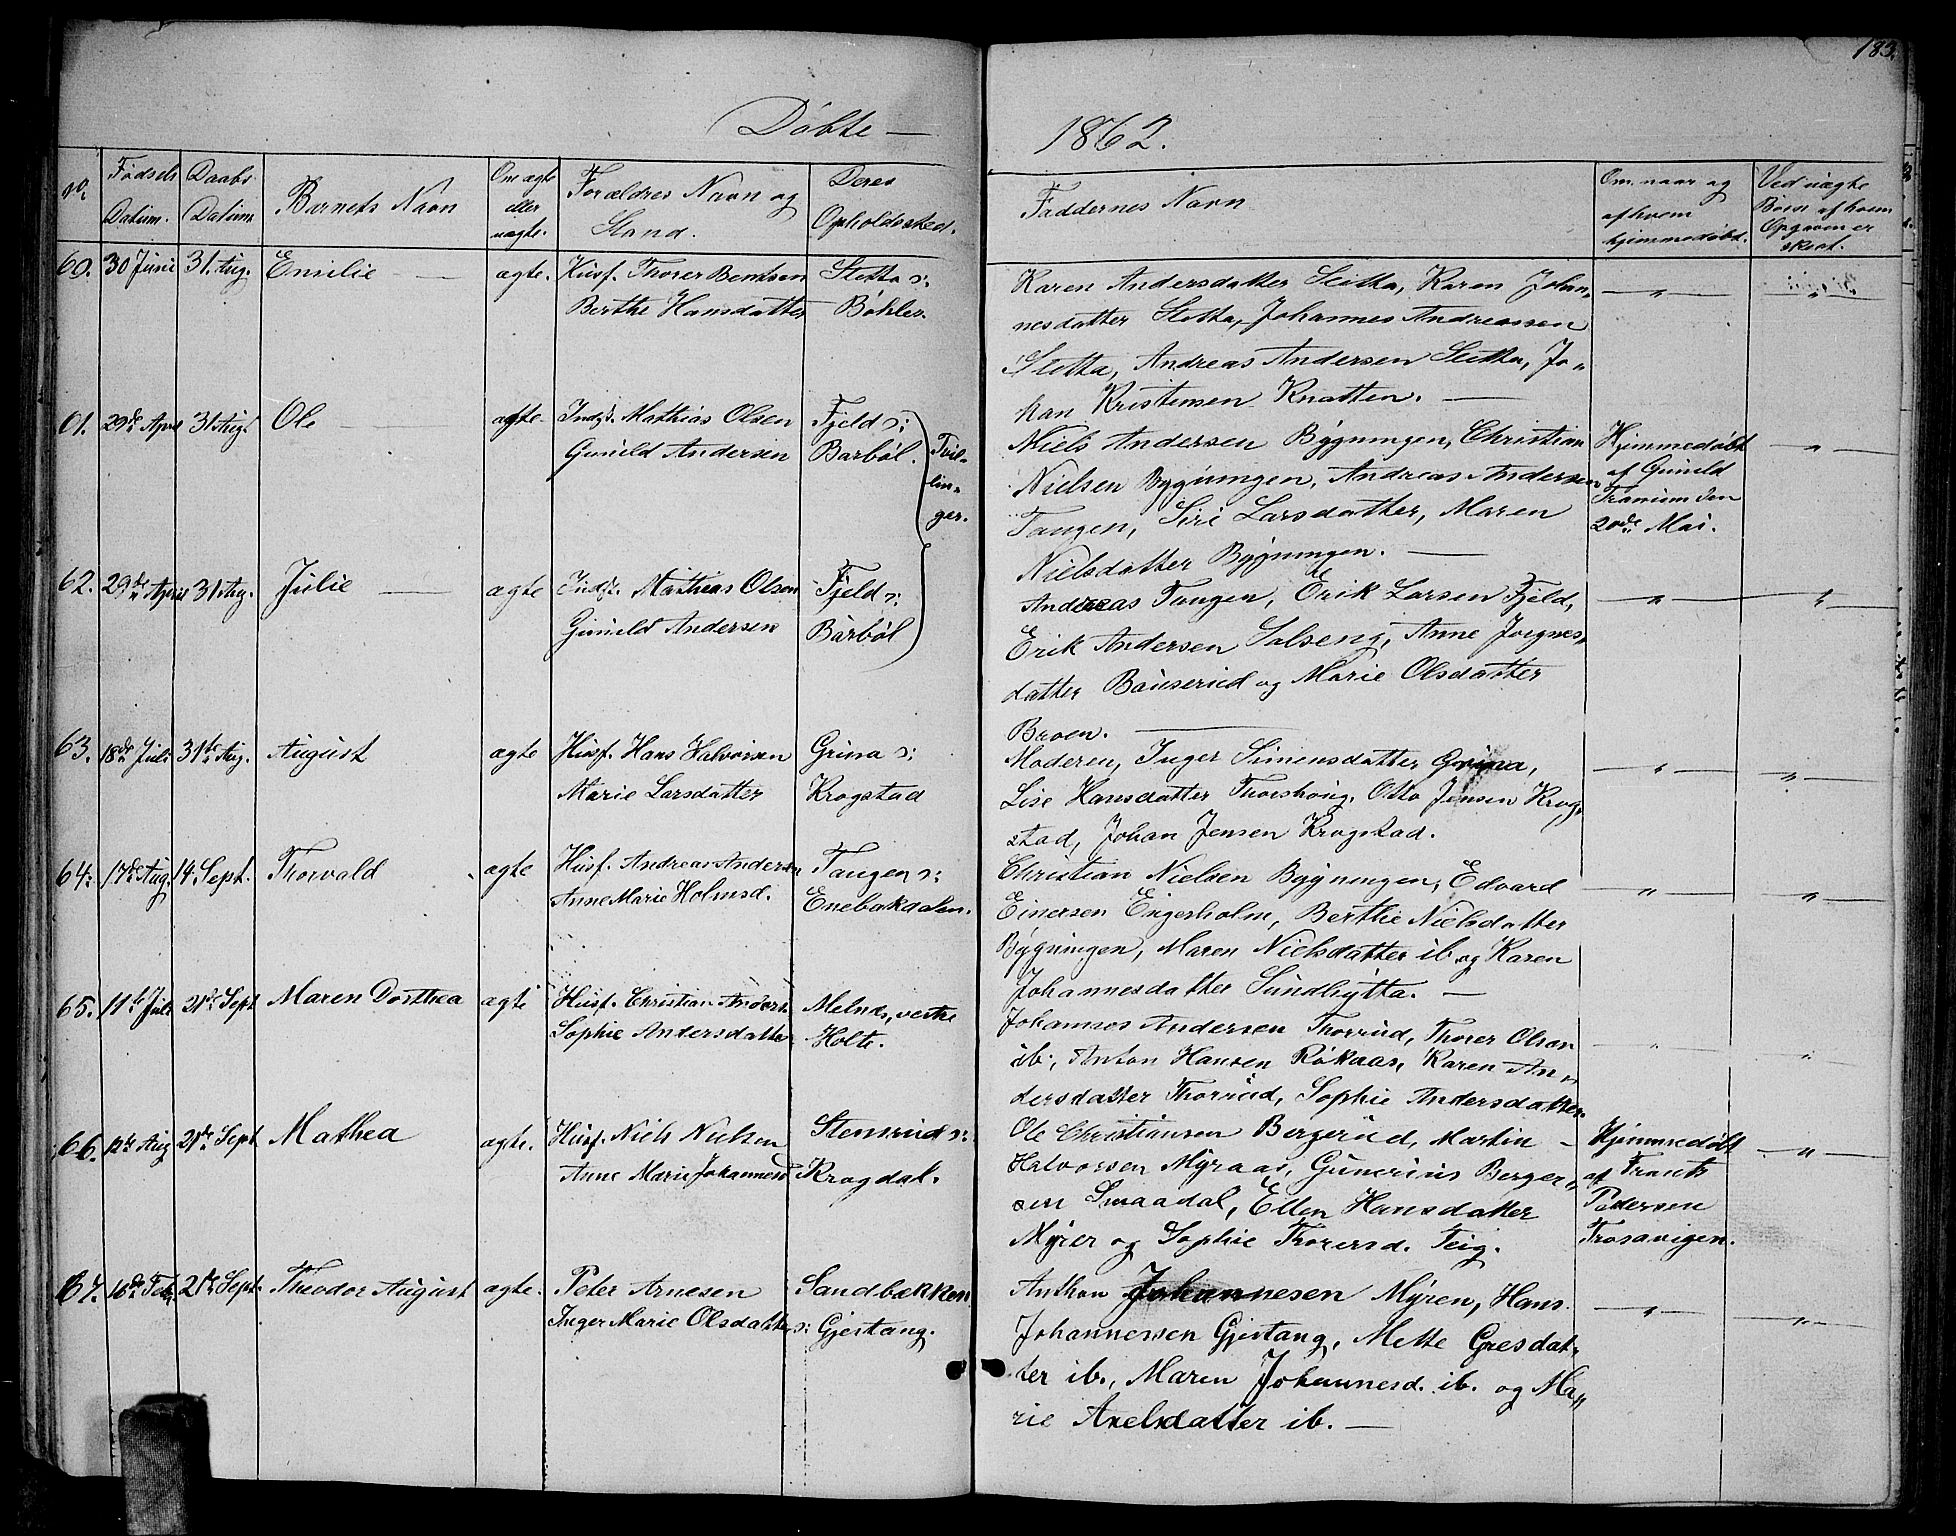 183.
Døbte — 1862.
No.
Fødsels Datum.
Daabs Datum
Barnets Navn
Om ægte eller uægte.
Forældres Navn og Stand.
Deres Opholdssted.
Faddernes Navn
Om, naar og af hvem hjemmedøbt.
Ved uægte Børn af hvem Opgaven er skeet.
60. 30 Juni 31. Aug. Emilie — ægte. Husf. Thorer Bentsen Slotta ɔ:
Berthe Hansdatter Bøhler.
Karen Andersdatter Slotta, Karen Johan„
nesdatter Slotta, Johannes Andreassen
Slotta, Andreas Andersen Slotta, Jo„
han Kristensen Knatten. —
— „ — — „ —
61. 29de April 31 Aug. Ole — ægte Indst. Mathias Olsen Fjeld ɔ:
Gunild Andersen Barbøl.
Tvil„
lin„
ger.
Niels Andersen Bygningen, Christian
Nielsen Bygningen, Andreas Andersen
Tangen, Siri Larsdatter, Maren
Nielsdatter Bygningen. —
Hjemmedøbt
af Gunild
Tranum den
20de Mai.
„ —
62. 29de April 31 Aug. Julie — ægte Indst. Mathias Olsen Fjeld ɔ:
Gunild Andersen Barbøl
Andreas Tangen, Erik Larsen Fjeld,
Erik Andersen Solseng, Anne Joegnes„
datter Bauserud og Marie Olsdatter
Broen. —
— „ — — „ —
63. 18de Juli 31te Aug. August ægte Husf. Hans Halvorsen Grina ɔ:
Marie Larsdatter Krogstad
Moderen, Inger Simensdatter Grina,
Lise Hansdatter Thorshoug, Otto Jensen Krog„
stad, Johan Jensen Krogstad.
— „ — — „ —
64. 17de Aug. 14. Sept. Thorvald ægte Husf. Andreas Andersen Tangen ɔ:
Anne Marie Holmsd. Enebakdalen.
Christian Nielsen Bygningen, Edvard
Einersen Engesholm, Berthe Nielsdatter
Bygningen, Maren Nielsdatter ib. og Karen
Johannesdatter Sundhytta. —
— „ — „ —
65. 11te Juli 21de Sept Maren Dorthea ægte Husf. Christian Anders. Melnes, vestre
Sophie Andersdatter Holte.
Johannes Andersen Thorrud, Thorer Olsen
ib., Anton Hansen Røkaas, Karen An„
dersdatter Thorrud, Sophie Andersdatter
— „ — „
66. 12te Aug 21de Sept. Mathea ægte. Husf. Niels Nielsen Stensrud ɔ:
Anne Marie Johannesd Krogdal.
Ole Christiansen Bergerud, Martin —
Halvorsen Myraas, Gunerius Berger„
sen Smaadal, Ellen Hansdatter
Myrer og Sophie Thorersd. Teig.
Hjemmedøbt
af Frants
Pedersen
Trosavigen.
— „ —
67. 16de Feb. 21de Sept. Theodor August ægte. Peter Arnesen Sandbækken
Inger Marie Olsdatter ɔ: Gjestang.
Anthon Johannesen Myren, Hans
Johannessen Gjestang, Mette Gresdat„
ter ib., Maren Johannesd. ib. og Ma„
rie Axelsdatter ib. —
— „ — — „ —